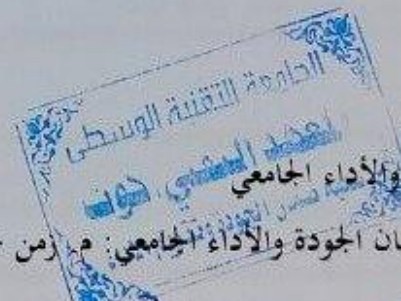 الجامعة التقنية الوسطى
المعهد التقني
والأداء الجامعي
ان الجودة والأداء الجامعي: م. زمن